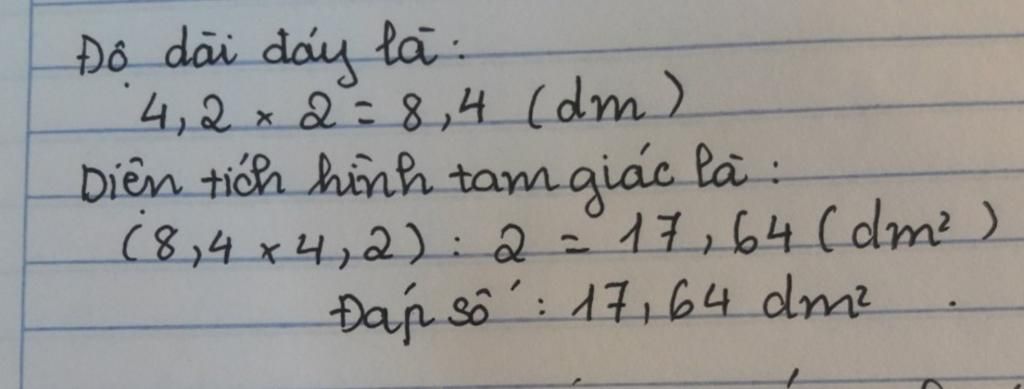 Độ dài đáy là:
4,2 × 2 = 8,4 (dm)
Diện tích hình tam giác là:
(8,4 × 4,2) : 2 = 17,64 (dm²)
Đáp số: 17,64 dm².